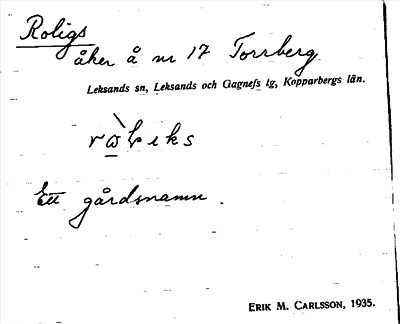 Roligs
åker å nr 17 Torrberg
Leksands sn, Leksands och Gagnefs tg, Kopparbergs län.
Ett gårdsnamn.
ERIK M. CARLSSON, 1935.